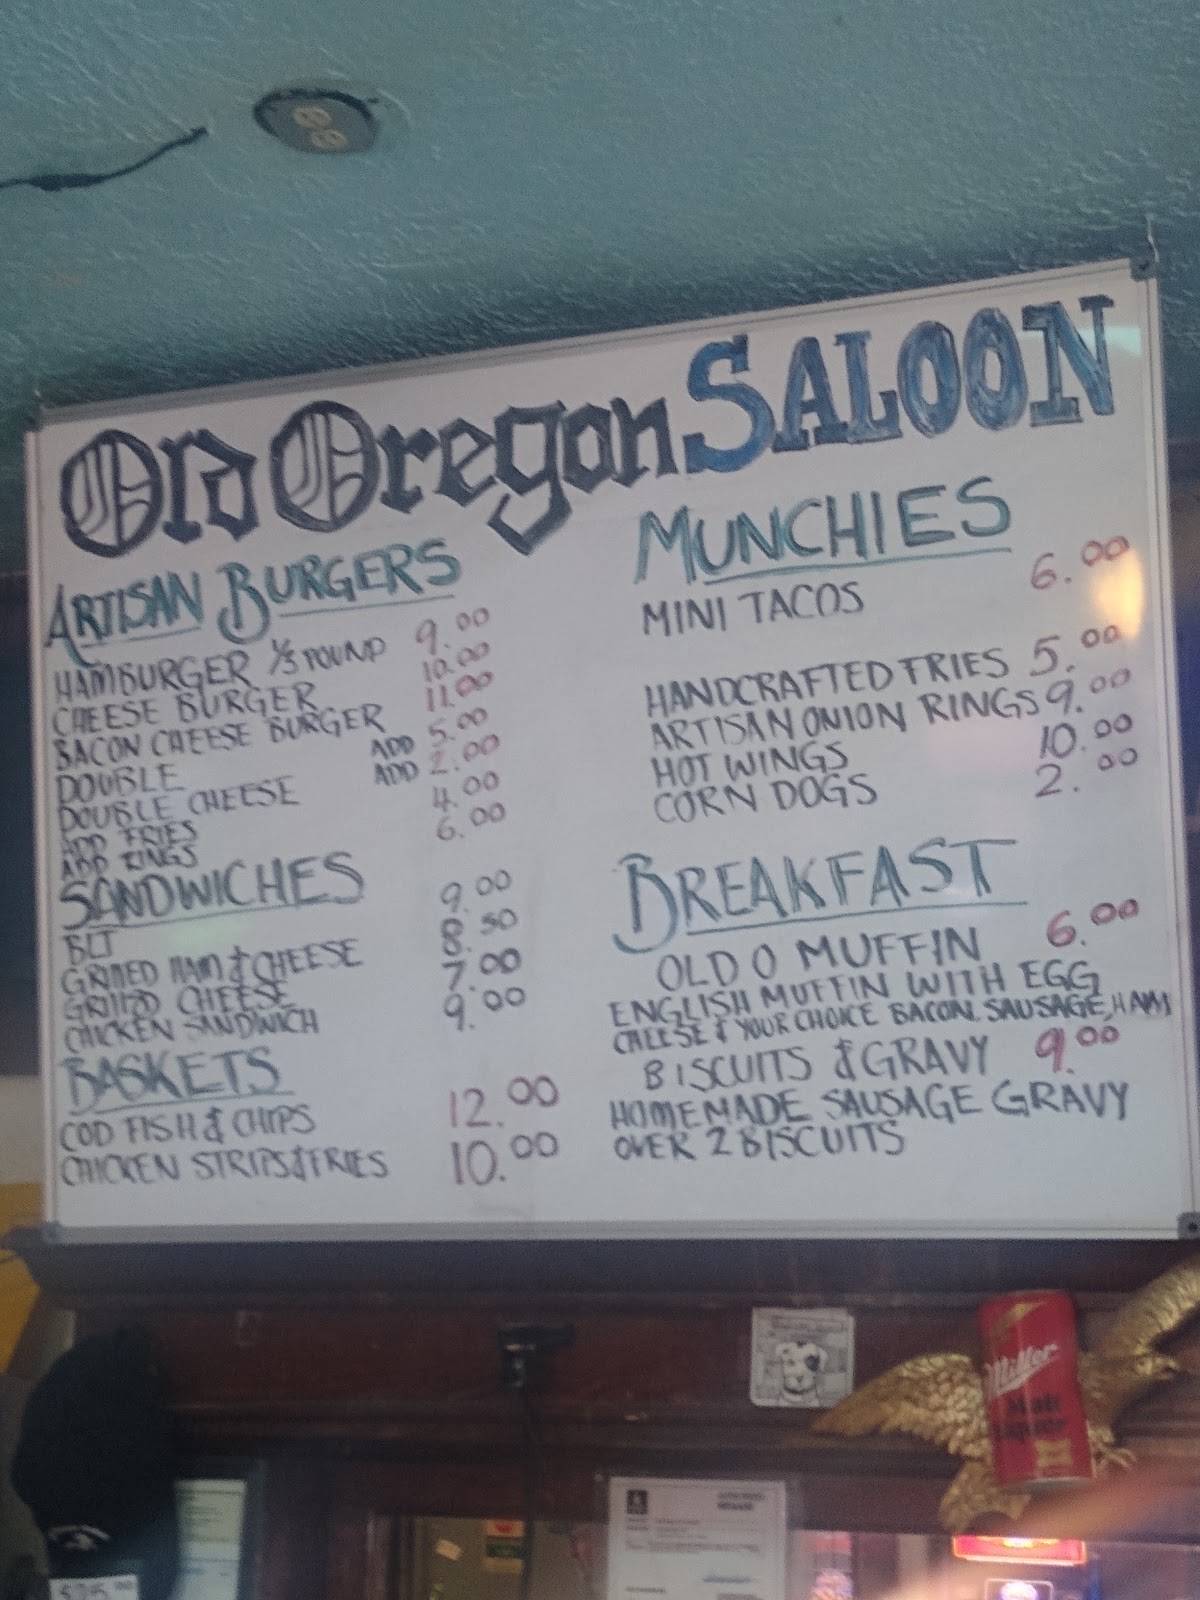 Old Oregon SALOON
ARTISAN BURGERS
HAMBURGER 1/3 POUND 9.00
CHEESE BURGER 10.00
BACON CHEESE BURGER 11.00
DOUBLE ADD 5.00
DOUBLE CHEESE ADD 2.00
ADD FRIES 4.00
ADD RINGS 6.00
SANDWICHES
BLT 9.00
GRILLED HAM & CHEESE 8.50
GRILLED CHEESE 7.00
CHICKEN SANDWICH 9.00
BASKETS
COD FISH & CHIPS 12.00
CHICKEN STRIPS & FRIES 10.00
MUNCHIES
MINI TACOS 6.00
HANDCRAFTED FRIES 5.00
ARTISAN ONION RINGS 9.00
HOT WINGS 10.00
CORN DOGS 2.00
BREAKFAST
OLD O MUFFIN 6.00
ENGLISH MUFFIN WITH EGG
CHEESE & YOUR CHOICE BACON, SAUSAGE, HAM
BISCUITS & GRAVY 9.00
HOMEMADE SAUSAGE GRAVY
OVER 2 BISCUITS
Miller